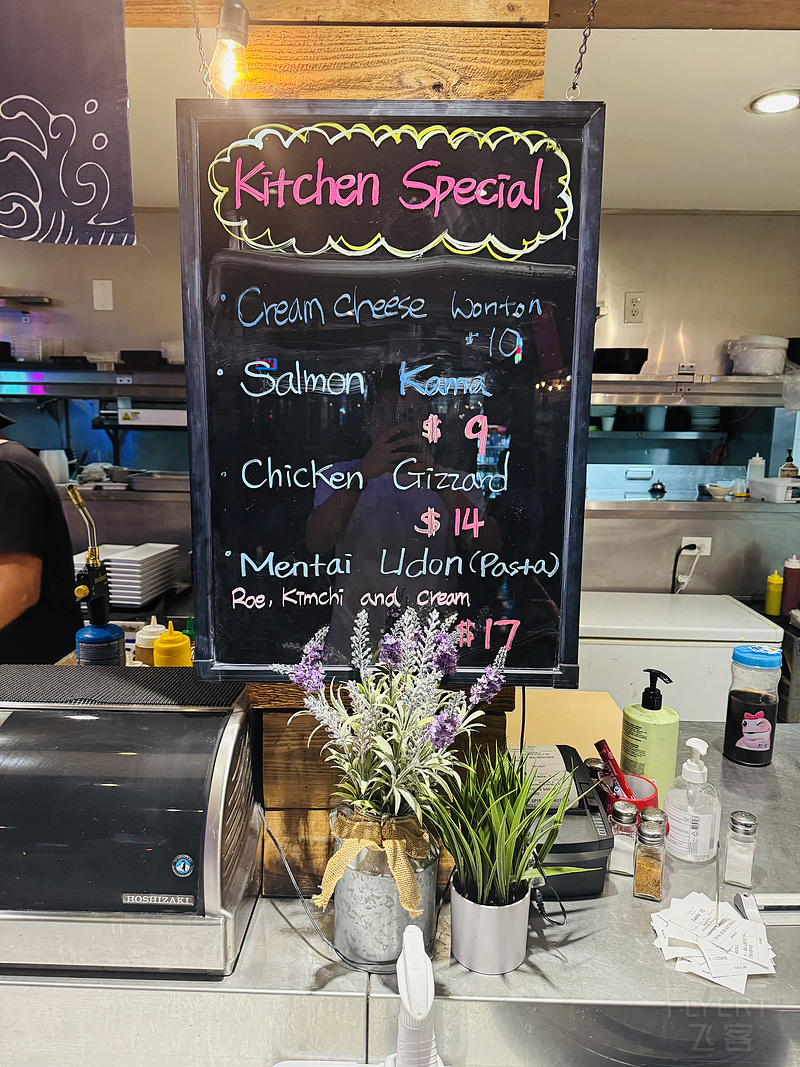 Kitchen Special
• Cream cheese Wonton
$10
• Salmon Kama
$ 9
• Chicken Gizzard
$ 14
• Mentai Udon (Pasta)
Roe, Kimchi and cream
$17
HOSHIZAKI
FLYERT
飞客